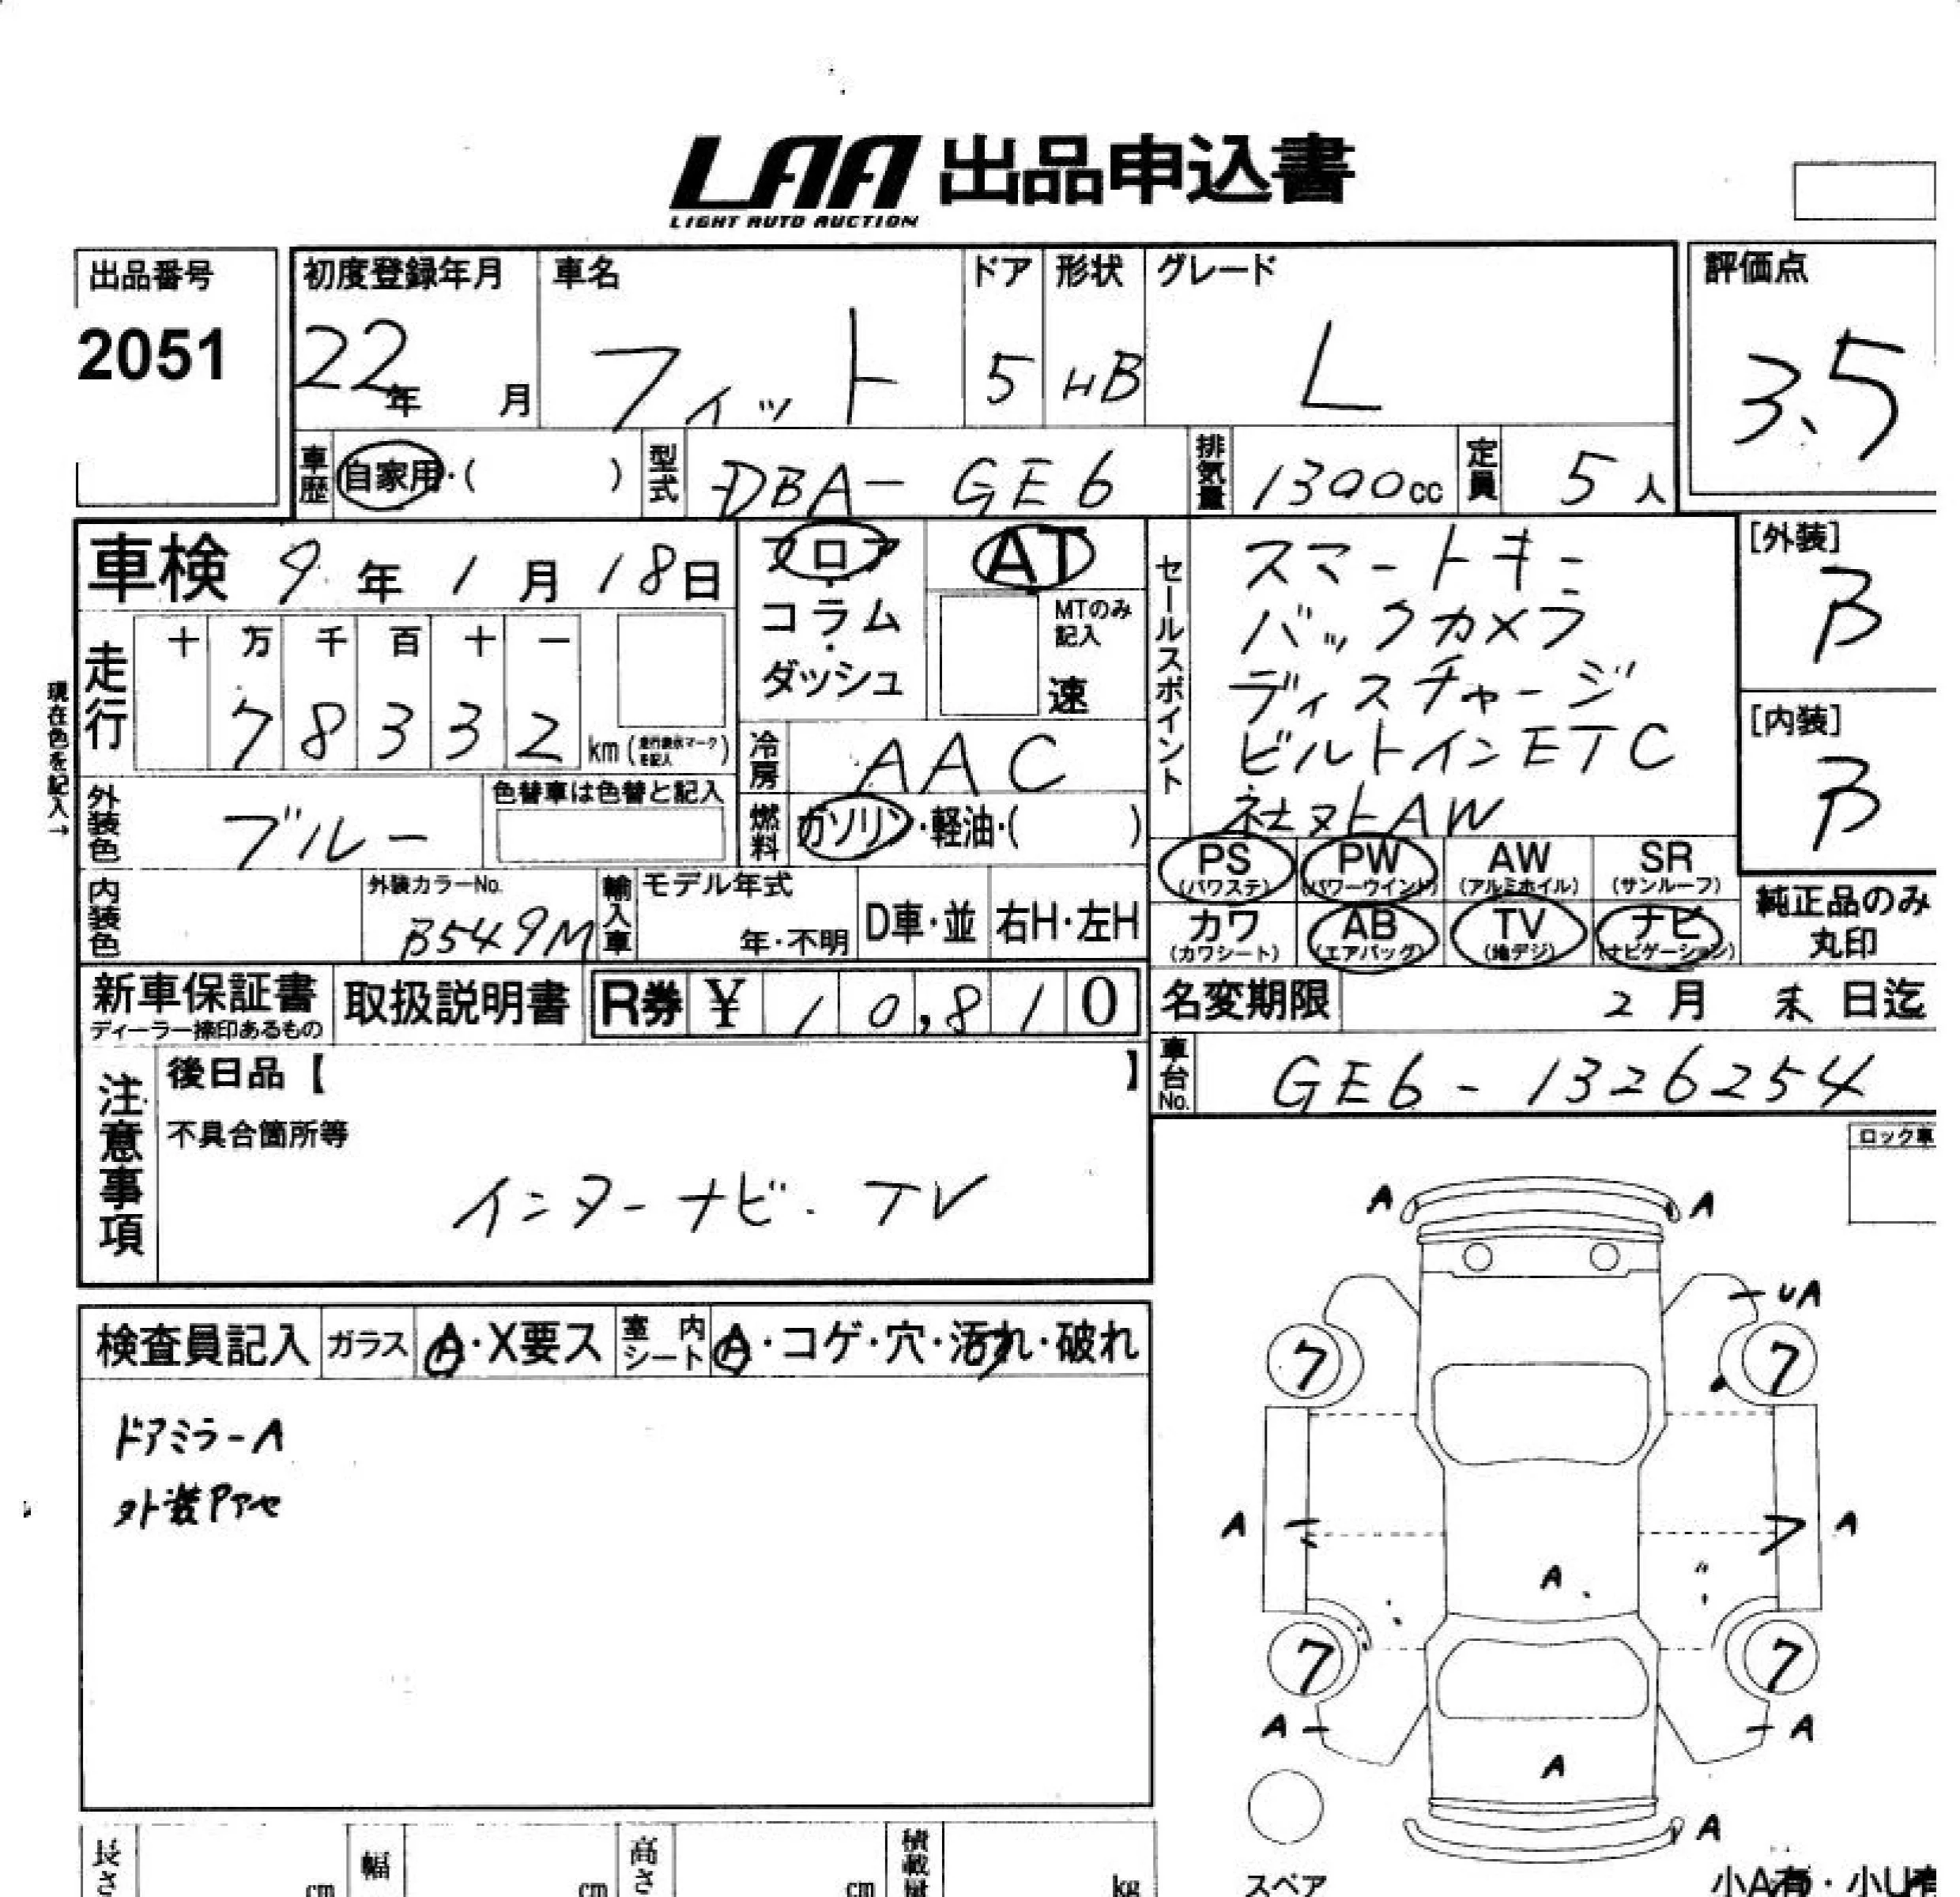 LAA 出品申込書
LIGHT AUTO AUCTION
出品番号
2051
初度登録年月
22年 月
車名
フィット
ドア
5
形状
HB
グレード
L
評価点
3.5
車歴 自家用・( )
型式 DBA- GE6
排気量 1300cc
定員 5人
車検 9年 1月 18日
フロア・コラム・ダッシュ
AT
MTのみ記入
速
セールスポイント
スマートキー
バックカメラ
ディスチャージ
ビルトインETC
社外AW
[外装]
B
[内装]
B
現在色を記入→
走行
十 万 千 百 十 一
7 8 3 3 2 km(走行表示マークを記入)
冷房 AAC
外装色 ブルー
色替車は色替と記入
燃料 ガソリン・軽油・( )
PS (パワステ)
PW (パワーウインド)
AW (アルミホイル)
SR (サンルーフ)
カワ (カワシート)
AB (エアバッグ)
TV (地デジ)
ナビ (ナビゲーション)
純正品のみ
丸印
内装色
外装カラーNo.
B549M
輸入車
モデル年式
年・不明
D車・並
右H・左H
新車保証書
ディーラー捺印あるもの
取扱説明書
R券 ¥ 10,810
名変期限 2月 末日迄
車台No. GE6-1326254
注意事項
後日品【 】
不具合箇所等
インターナビ・TV
ロック車
検査員記入
ガラス A・X要ス
室内シート A・コゲ・穴・汚れ・破れ
ドアミラーA
外装Pアセ
A A
UA
7 7
A A
A
7 7
A A
A
A
スペア
小A有・小U有
長さ cm
幅 cm
高さ cm
積載量 kg